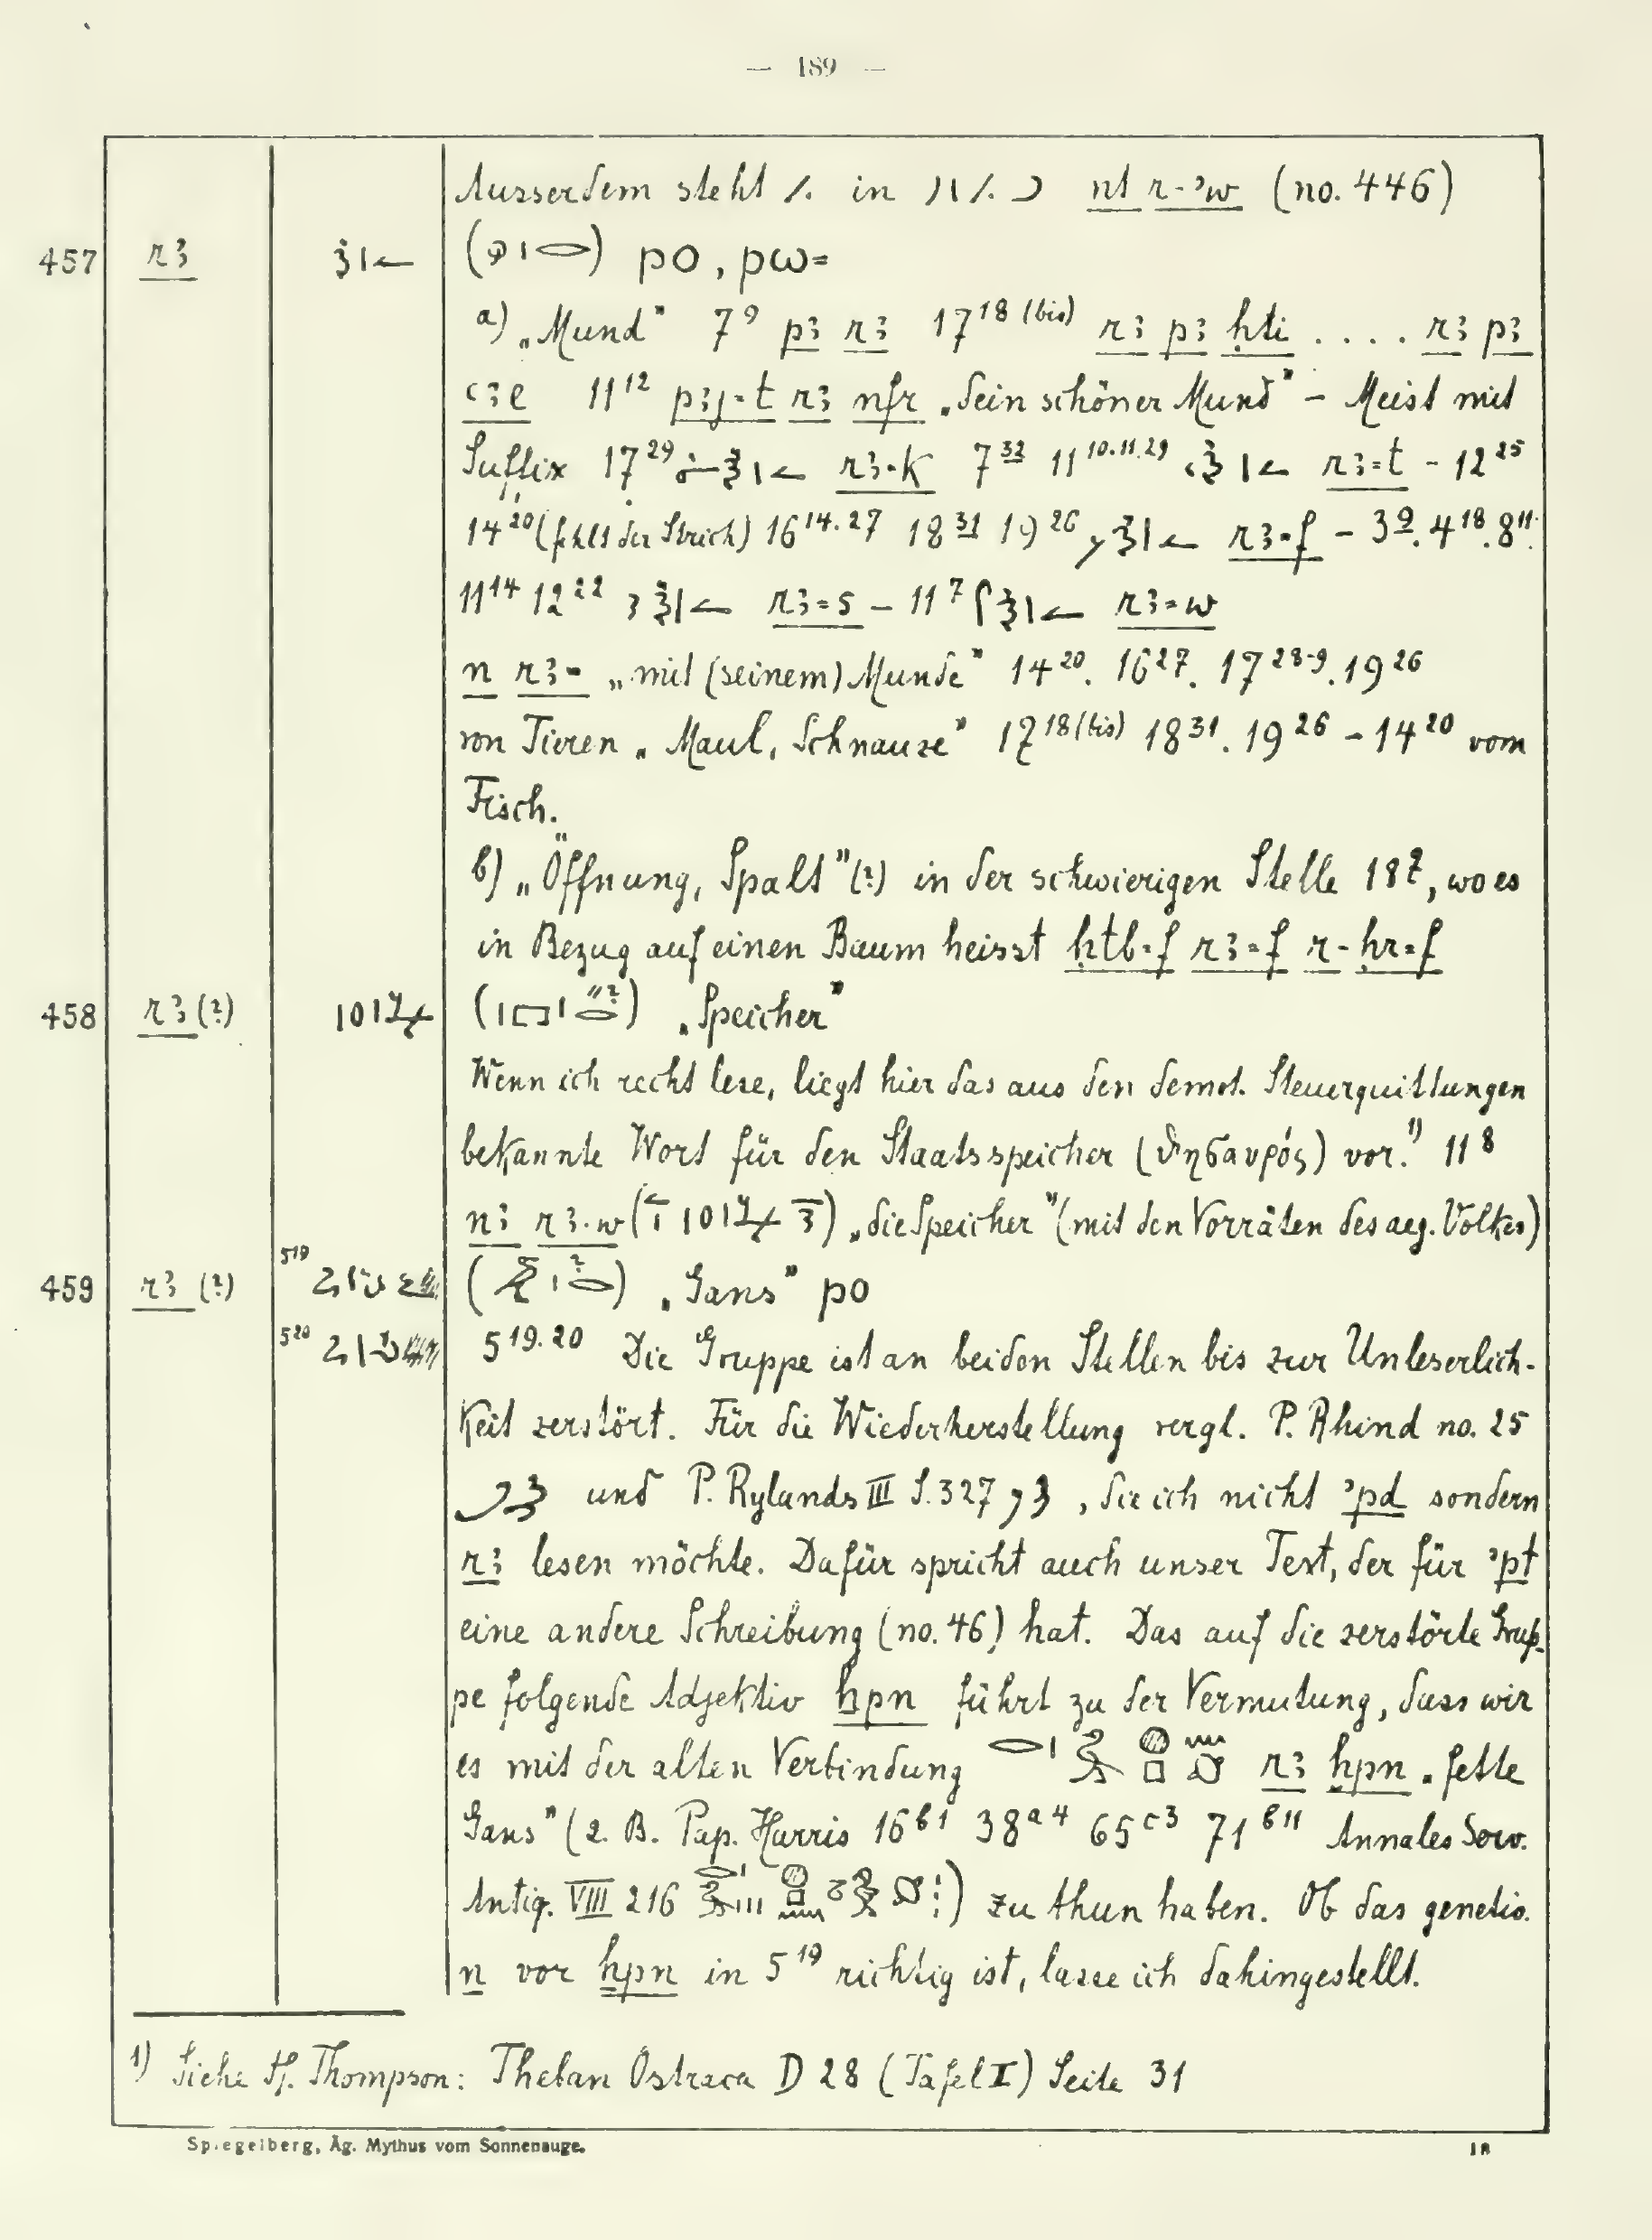 — 189 —
Ausserdem steht in nt r-ꜣw (no. 446)
457 rꜣ ⲣⲟ, ⲣⲱ=
a) „Mund" 7⁹ pꜣ rꜣ 17¹⁸ ⁽ᵇⁱˢ⁾ rꜣ pꜣ ḥti .... rꜣ pꜣ
11¹² pꜣj=t rꜣ nfr „dein schöner Mund" – Meist mit
Suffix 17²⁹ rꜣ=k 7³² 11¹⁰·¹¹·²⁹ rꜣ=t – 12²⁵
14²⁰ (fehlt der Strich) 16¹⁴·²⁷ 18³¹ 19²⁶ rꜣ=f – 3⁹. 4¹⁸. 8¹¹.
11¹⁴ 12²² rꜣ=s – 11⁷ rꜣ=w
n rꜣ= „mit (seinem) Munde" 14²⁰. 16²⁷. 17²⁸⁻⁹. 19²⁶
von Tieren „Maul, Schnauze" 17¹⁸ ⁽ᵇⁱˢ⁾ 18³¹. 19²⁶ – 14²⁰ vom
Fisch.
b) „Öffnung, Spalt" (?) in der schwierigen Stelle 18⁷, wo es
in Bezug auf einen Baum heisst ḥtb=f rꜣ=f r-ḥr=f
458 rꜣ (?) „Speicher"
Wenn ich recht lese, liegt hier das aus den demot. Steuerquittungen
bekannte Wort für den Staatsspeicher (ϑησαυρός) vor.¹⁾ 11⁸
nꜣ rꜣ.w „die Speicher" (mit den Vorräten des aeg. Volkes)
459 rꜣ (?) 5¹⁹ „Gans" ⲣⲟ
5²⁰ 5¹⁹·²⁰ Die Gruppe ist an beiden Stellen bis zur Unleserlich-
keit zerstört. Für die Wiederherstellung vergl. P. Rhind no. 25
und P. Rylands III S. 327, die ich nicht ꜣpd sondern
rꜣ lesen möchte. Dafür spricht auch unser Text, der für ꜣpt
eine andere Schreibung (no. 46) hat. Das auf die zerstörte Grup-
pe folgende Adjektiv ẖpn führt zu der Vermutung, dass wir
es mit der alten Verbindung rꜣ ḫpn „fette
Gans" (z. B. Pap. Harris 16ᵇ¹ 38ᵃ⁴ 65ᶜ³ 71ᵇ¹¹ Annales Serv.
Antiq. VIII 216) zu thun haben. Ob das genetiv.
n vor ẖpn in 5¹⁹ richtig ist, lasse ich dahingestellt.
1) Siehe H. Thompson: Theban Ostraca D 28 (Tafel I) Seite 31
Spiegelberg, Äg. Mythus vom Sonnenauge. 18